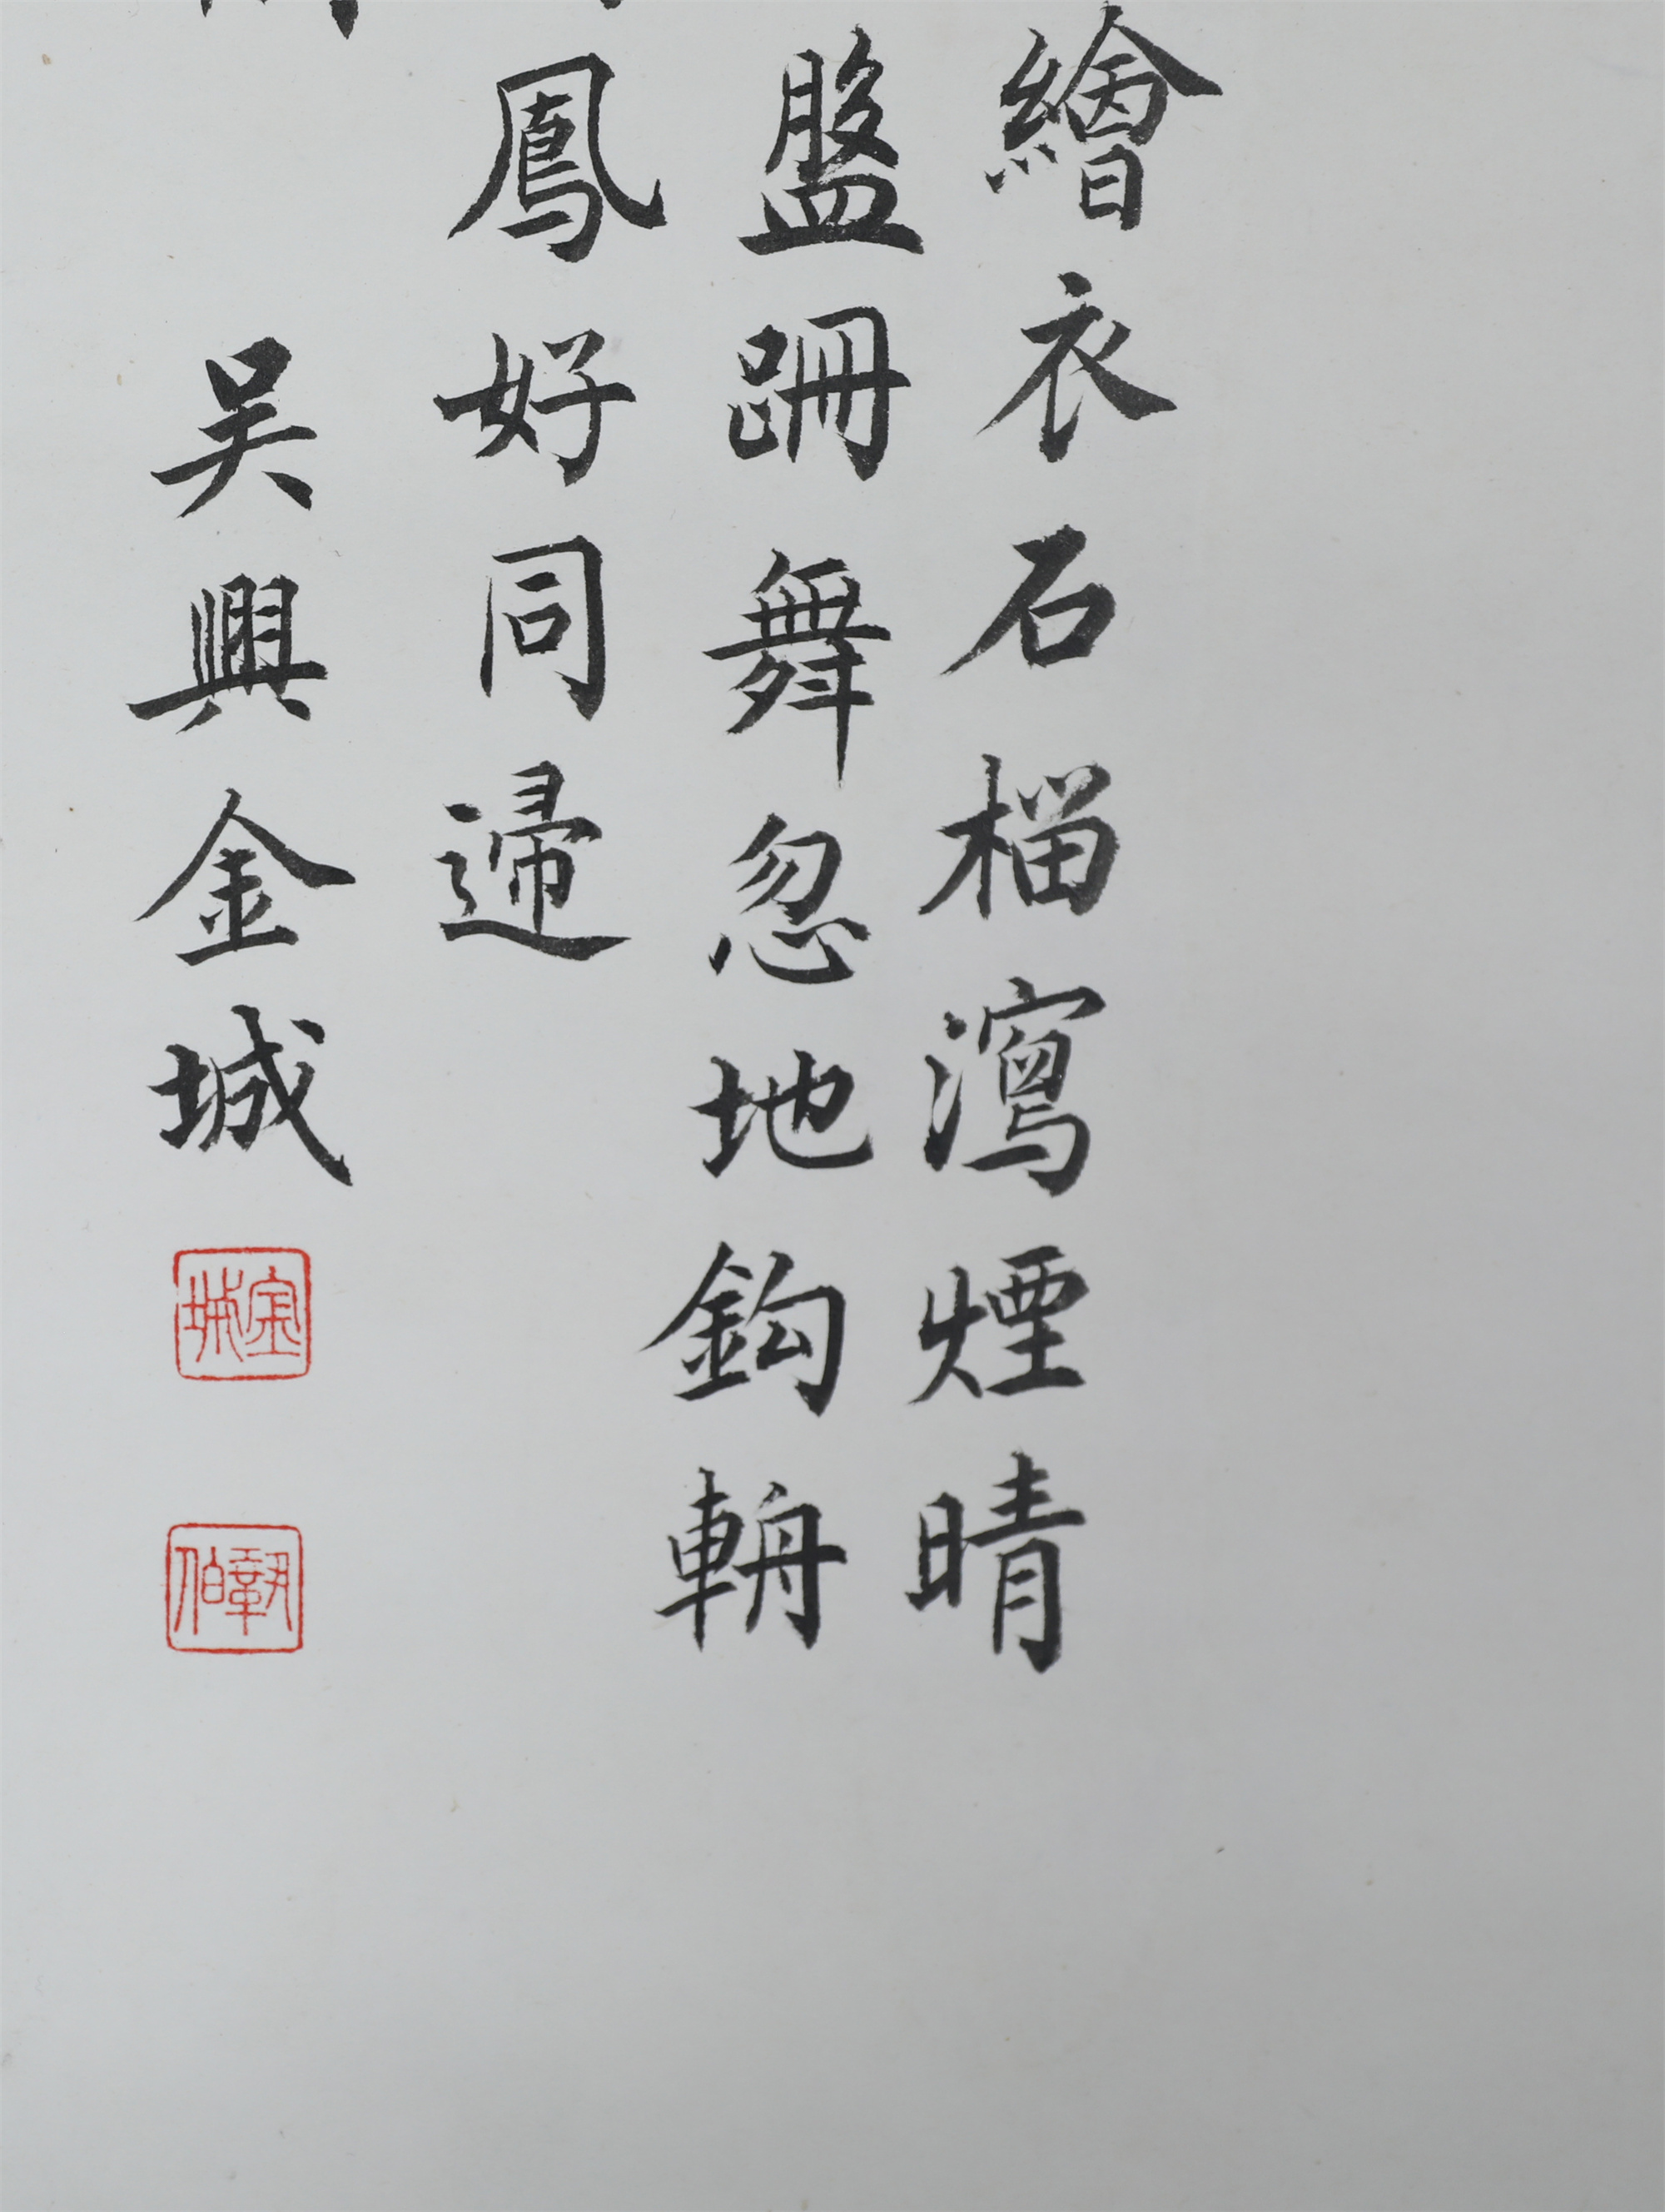 繪衣石榴瀉煙晴
盤跚舞忽地鈎輈
鳳好同歸
吴興金城
金城
鞏伯